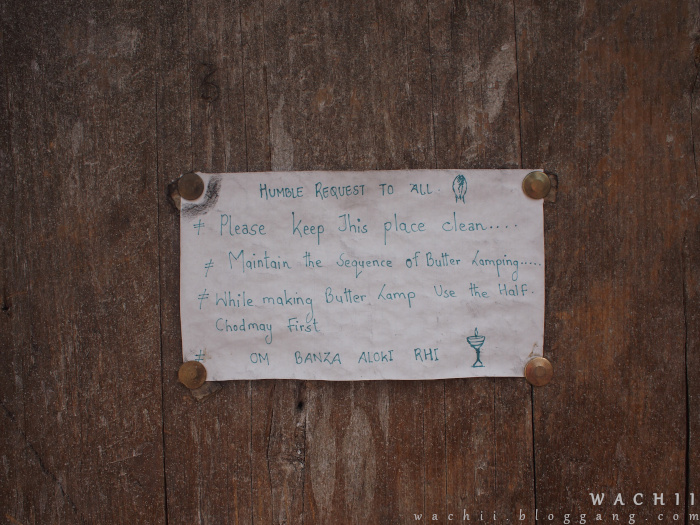 HUMBLE REQUEST TO ALL.
# Please Keep This place clean....
# Maintain the Sequence of Butter Lamping.....
# While making Butter Lamp Use the Half.
Chodmay First
# OM BANZA ALOKI RHI
WACHII
wachii.bloggang.com